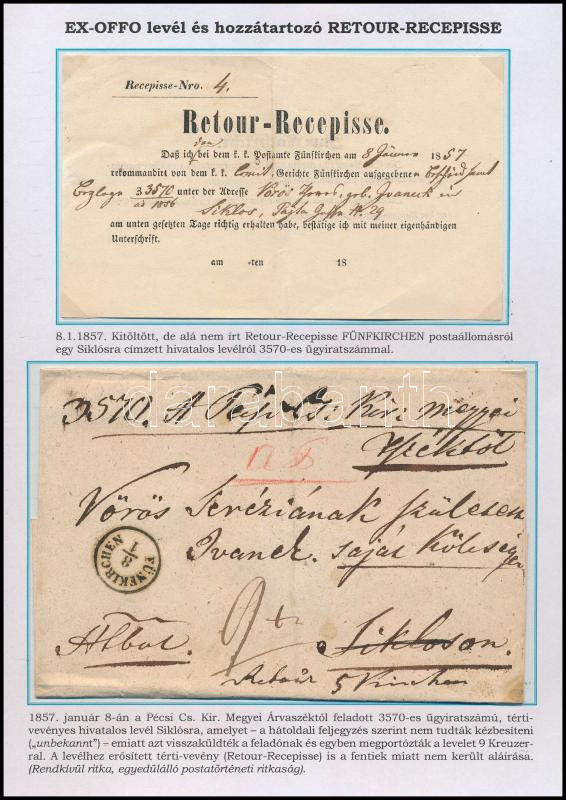 EX-OFFO levél és hozzátartozó RETOUR-RECEPISSE
Recepisse-Nro. 4.
Retour-Recepisse.
Daß bei dem k. k. Postamte Fünfkirchen am 8 Jänner 1857
rekommandirt von dem k. k. Comit. Gerichte Fünfkirchen ausgegebene
3570 unter der Adresse Vörös geb. Ivanek in
Siklos, No. 29
am unten gesetzten Tage richtig erhalten habe, bestätige ich mit meiner eigenhändigen
Unterschrift.
am ten 18
8.1.1857. Kitöltött, de alá nem írt Retour-Recepisse FÜNFKIRCHEN postaállomásról
egy Siklósra címzett hivatalos levélről 3570-es ügyiratszámmal.
darabanth
3570. A Cs: Kir: megyei
Vörös Teréziának születese
Ivanek. saját költségé
FÜNFKIRCHEN
8/1
9
Sikloson.
Retour
5 Kirchen
1857. január 8-án a Pécsi Cs. Kir. Megyei Árvaszéktől feladott 3570-es ügyiratszámú, térti-
vevényes hivatalos levél Siklósra, amelyet – a hátoldali feljegyzés szerint nem tudták kézbesíteni
(„unbekannt”) – emiatt azt visszaküldték a feladónak és egyben megportózták a levelet 9 Kreuzer-
ral. A levélhez erősített térti-vevény (Retour-Recepisse) is a fentiek miatt nem került aláírásra.
(Rendkívül ritka, egyedülálló postatörténeti ritkaság).